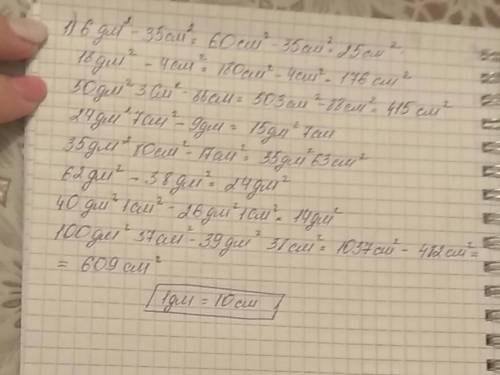 1) 6 дм² - 35см² = 60см² - 35см² = 25см²
18дм² - 4см² = 180см² - 4см² = 176см²
50дм² 3см² - 88см = 503см² - 88см² = 415см²
24дм² 7см² - 9дм = 15дм² 7см
35дм² 80см² - 17см² = 35дм² 63см²
62дм² - 38дм² = 24дм²
40дм² 1см² - 26дм² 1см² = 14дм²
100дм² 37см² - 39дм² 38см² = 1037см² - 428см² =
= 609см²
1дм = 10см